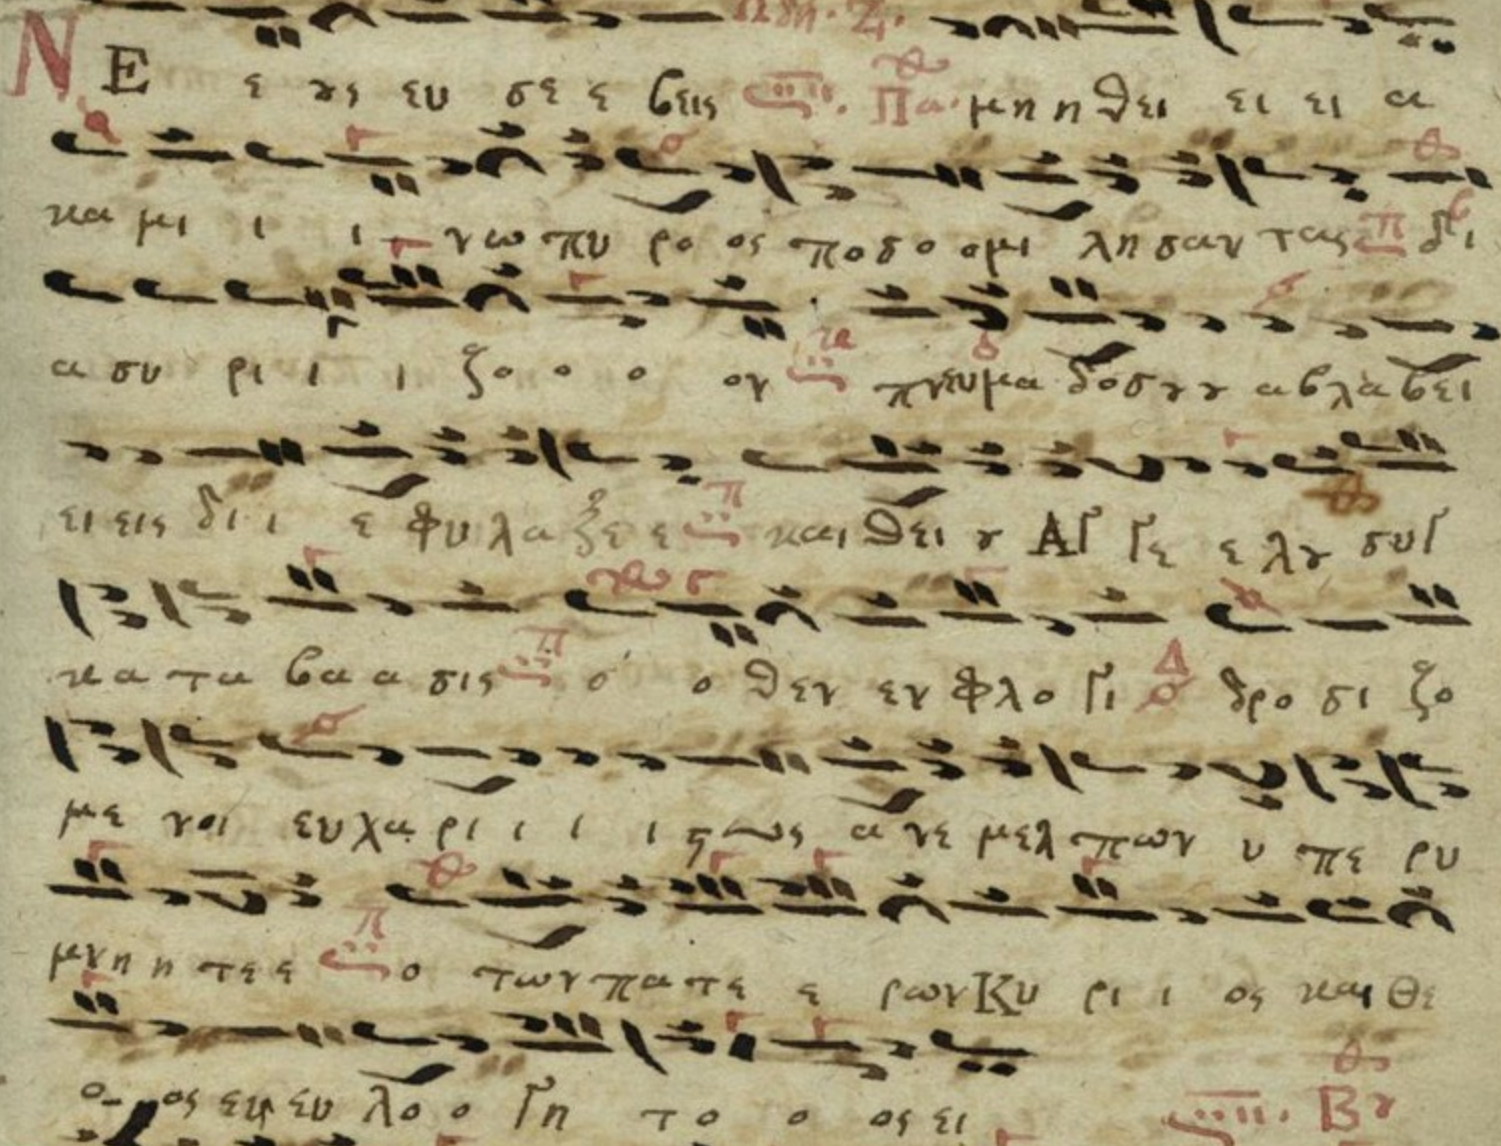 Ωδη. Ζ.
ΝΕ ε ους ευ σε ε βεις Πα. μη η θει ει ει α
κα μι ι ι νω πυ ρο ος πο δο ο μι λη σαν τας π δι ι
α συ ρι ι ι ζο ο ο ον γα πνευμα δοσου ου αβλαβει
ει εις δι ι ε φυ λα ξε ε π και θει ου Αγ γε ε λου συγ
κα τα βα α σις π ο ο θεν εν φλο γι Δ δρο σι ζο
με νοι ευχα ρι ι ι ι στως α νε μελ πων υ πε ρυ
μνη η τε ε π ο των πα τε ε ρων Κυ ρι ι ος και Θε
ο ος ευ λο ο γη τ ο ο ος ει Βου